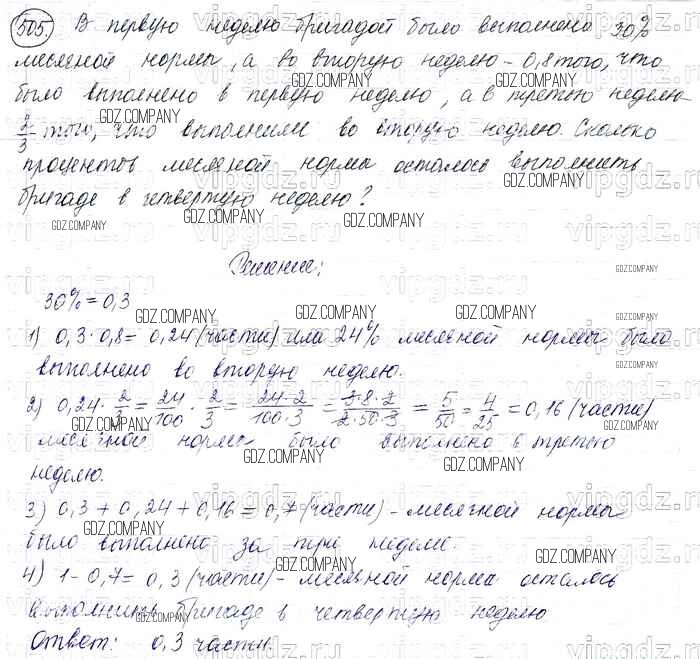 505. В первую неделю бригадой было выполнено 30%
месячной нормы, а во вторую неделю - 0,8 того, что
было выполнено в первую неделю, а в третью неделю
2/3 того, что выполнили во вторую неделю. Сколько
процентов месячной нормы осталось выполнить
бригаде в четвертую неделю?
Решение:
30% = 0,3
1) 0,3 · 0,8 = 0,24 (части) или 24% месячной нормы было
выполнено во вторую неделю.
2) 0,24 · 2/3 = 24/100 · 2/3 = 24·2/100·3 = = 4/25 = 0,16 (части)
месячной нормы было выполнено в третью
неделю.
3) 0,3 + 0,24 + 0,16 = 0,7 (части) - месячной нормы
было выполнено за три недели.
4) 1 - 0,7 = 0,3 (части) - месячной нормы осталось
выполнить бригаде в четвертую неделю
Ответ: 0,3 части.
GDZ.COMPANY
vipgdz.ru